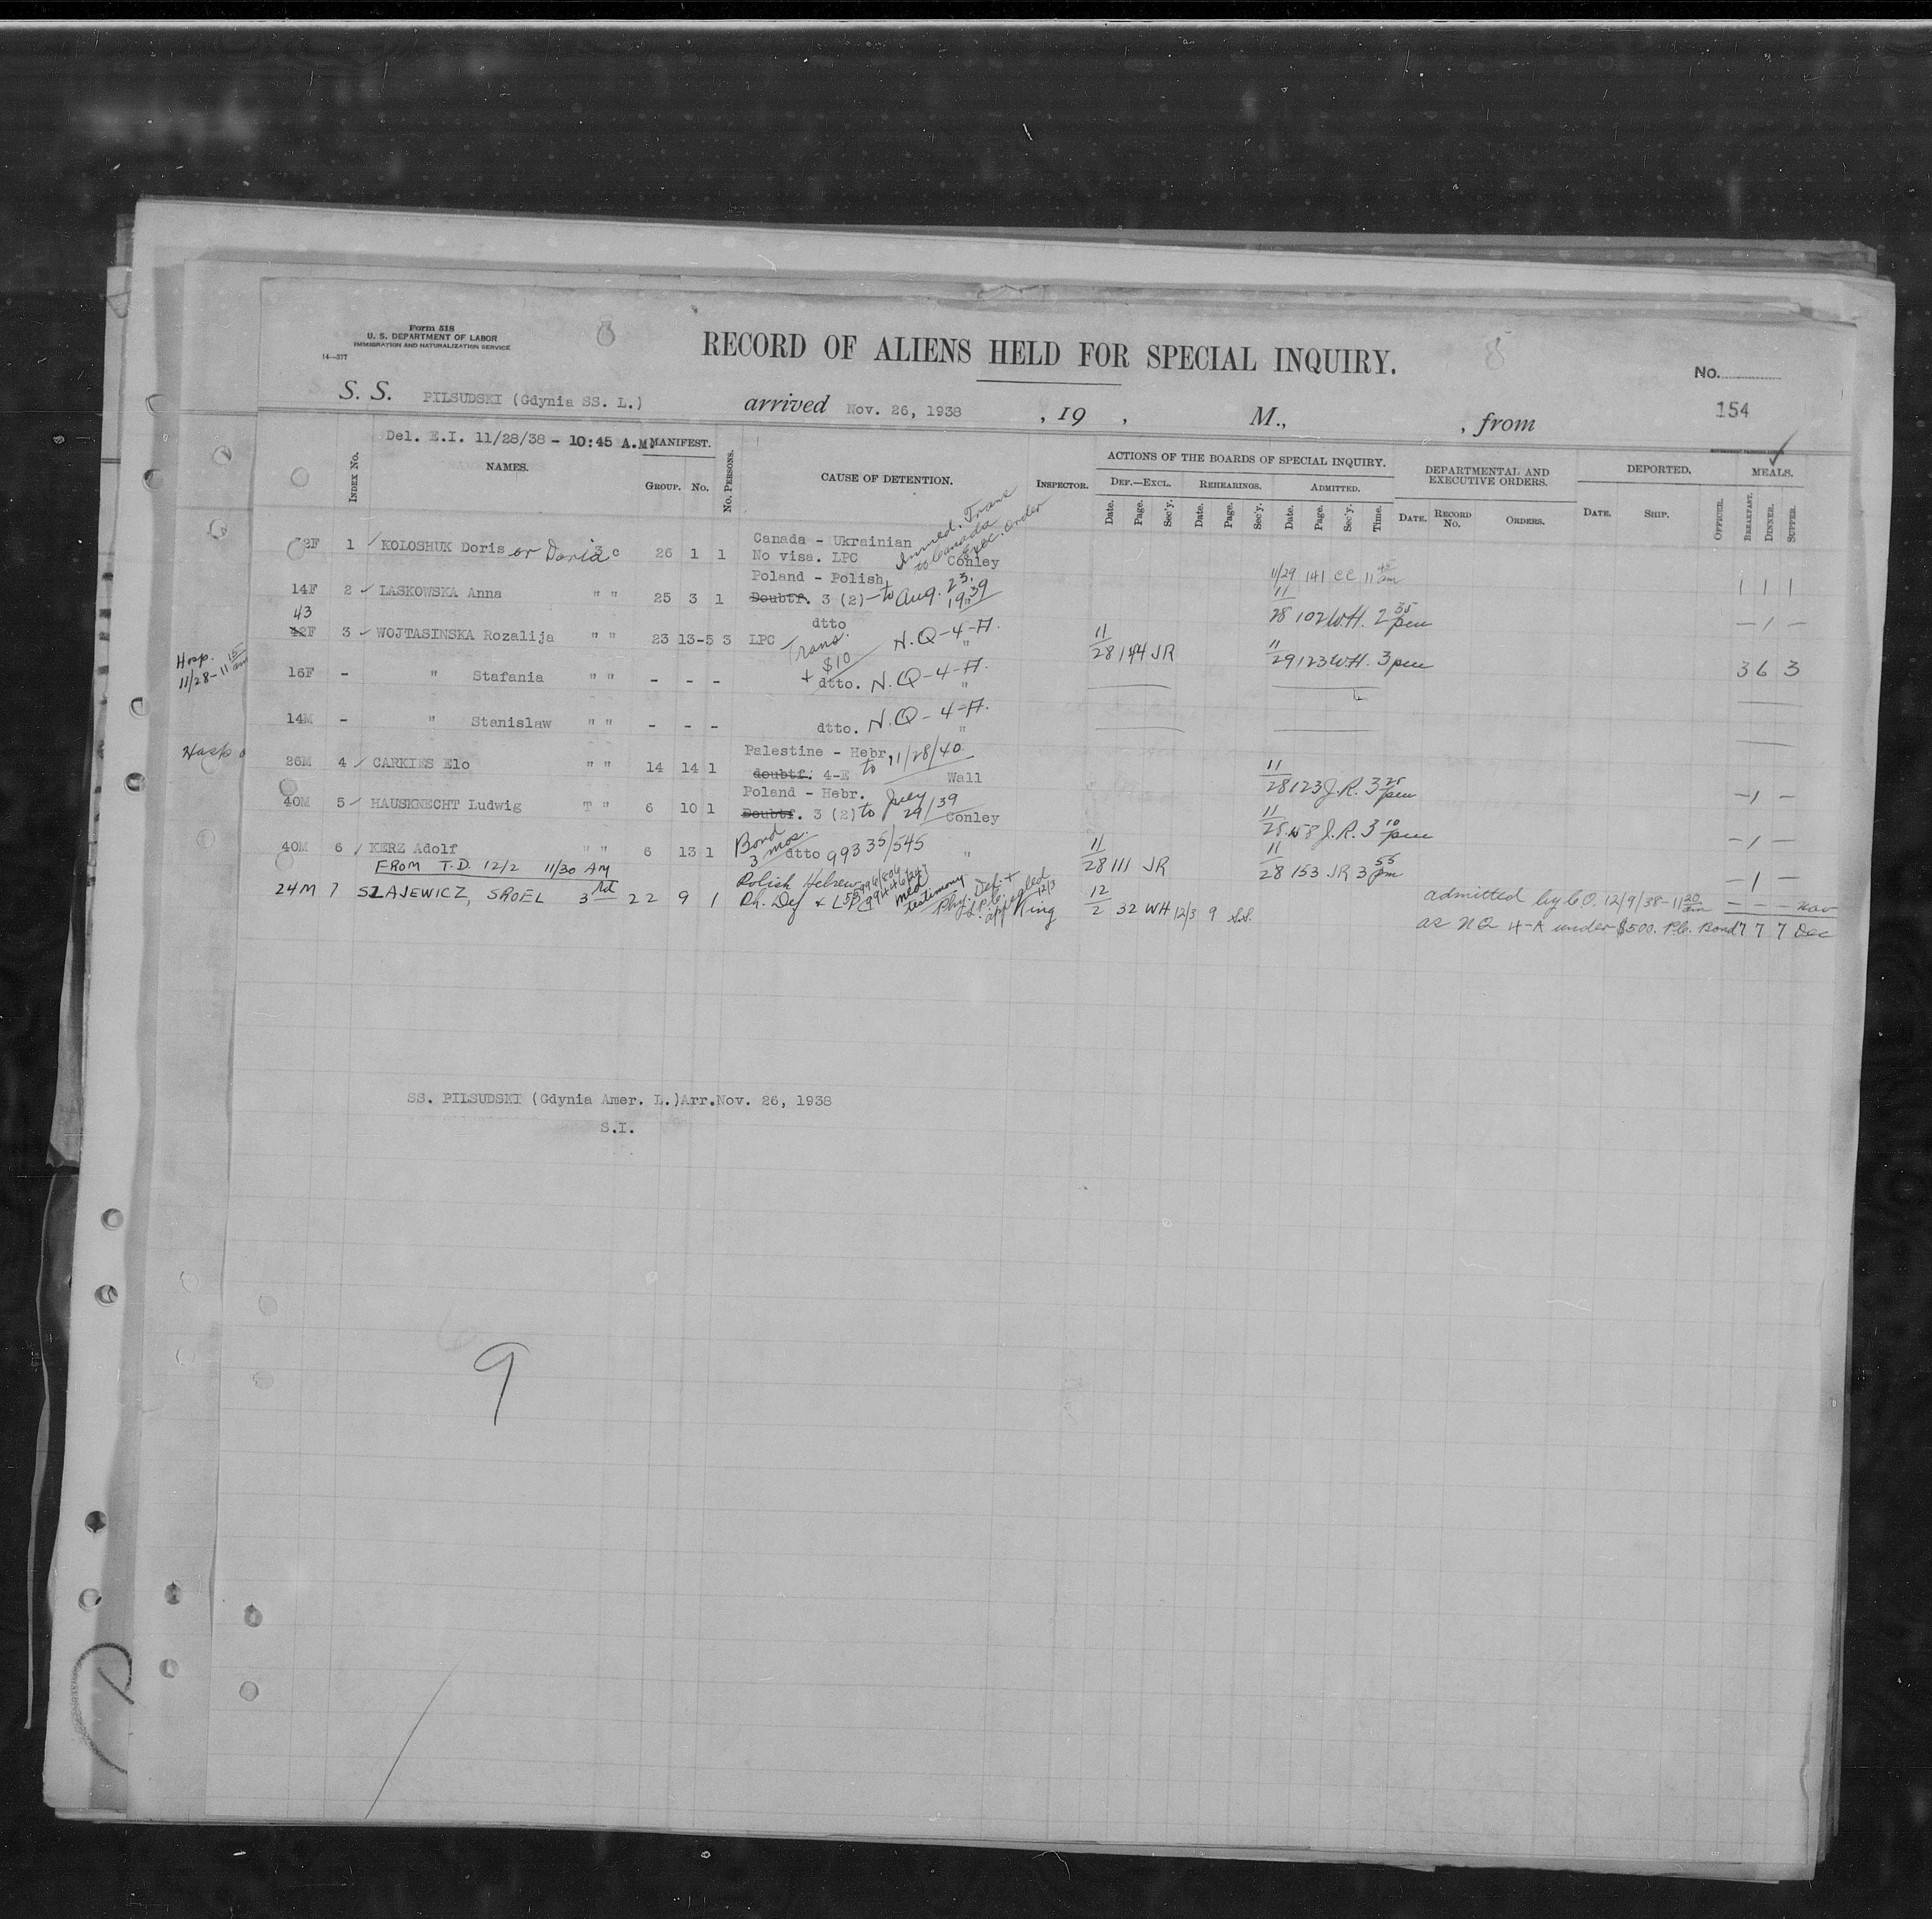 Form 518
U. S. DEPARTMENT OF LABOR
IMMIGRATION AND NATURALIZATION SERVICE
14—377
RECORD OF ALIENS HELD FOR SPECIAL INQUIRY.
No.
154
S. S. PILSUDSKI (Gdynia SS. L.) arrived Nov. 26, 1938 , 19 , M., , from
Del. E.I. 11/28/38 - 10:45 A.M.
INDEX No. NAMES. MANIFEST. GROUP. No. No. PERSONS. CAUSE OF DETENTION. INSPECTOR.
ACTIONS OF THE BOARDS OF SPECIAL INQUIRY.
DEF.—EXCL. REHEARINGS. ADMITTED.
Date. Page. Sec'y. Date. Page. Sec'y. Date. Page. Sec'y. Time.
DEPARTMENTAL AND EXECUTIVE ORDERS.
DATE. RECORD No. ORDERS.
DEPORTED.
DATE. SHIP.
MEALS.
OFFICER. BREAKFAST. DINNER. SUPPER.
Immed. Trans
to Canada
Exec. Order
Canada - Ukrainian
2F 1 KOLOSHUK Doris or Daria 3 c 26 1 1 No visa. LPC Conley 11/29 141 CC 11 45 am 1 1 1
Poland - Polish
14F 2 LASKOWSKA Anna " " 25 3 1 Doubtf. 3 (2) - to Aug. 23, 1939 " 11/28 102 W.H. 2 35 pm — 1 —
43
42F 3 WOJTASINSKA Rozalija " " 23 13-5 3 LPC dtto Trans. + $10 N.Q-4-A. " 11/28 144 JR 11/29 123 W.H. 3 pm 3 6 3
Hosp. 11/28-11 15 am
16F - " Stafania " " - - - dtto. N.Q-4-A. "
14M - " Stanislaw " " - - - dtto. N.Q-4-A. "
Hosp
Palestine - Hebr.
26M 4 CARKIES Elo " " 14 14 1 doubtf. 4-E to 11/28/40 Wall 11/28 123 J.R. 3 25 pm — 1 —
Poland - Hebr.
40M 5 HAUSKNECHT Ludwig T " 6 10 1 Doubtf. 3 (2) to July 29/39 Conley 11/28 158 J.R. 3 10 pm — 1 —
40M 6 KERZ Adolf " " 6 13 1 Bond 3 mos. dtto 99335/545 " 11/28 111 JR 11/28 153 JR 3 55 pm — 1 —
FROM T.D. 12/2 11/30 AM
Polish Hebrew
24M 7 SLAJEWICZ, SROEL 3rd 22 9 1 Ph. Def + LPC med testimony Phy. Def. + L.P.C. appealed 12/3 King 12/2 32 WH 12/3 9
admitted by C.O. 12/9/38-11 20 am — — — Nov
as NQ 4-A under $500. P.C. Bond 7 7 7 Dec
SS. PILSUDSKI (Gdynia Amer. L.)Arr.Nov. 26, 1938
S.I.
9